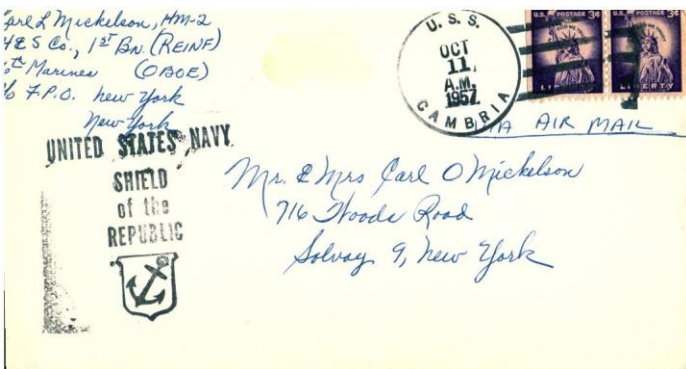 Carl L Mickelson, HM-2
H & S Co., 1ST BN. (REINF)
6th Marines (OBOE)
% F.P.O. New York
New York
U.S.S. CAMBRIA
OCT
11
A.M.
1957
U.S. POSTAGE 3¢
LIBERTY
U.S. POSTAGE 3¢
LIBERTY
VIA AIR MAIL
UNITED STATES NAVY
SHIELD
of the
REPUBLIC
Mr. & Mrs Carl O Mickelson
716 Woods Road
Solvay 9, New York